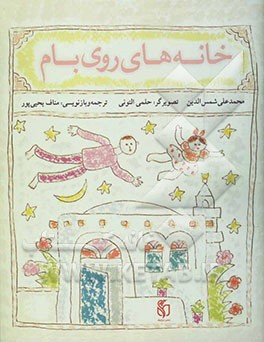 خانه‌های روی بام
محمدعلی شمس‌الدین   تصویرگر: حلمی التونی   ترجمه و بازنویسی: مناف یحیی‌پور